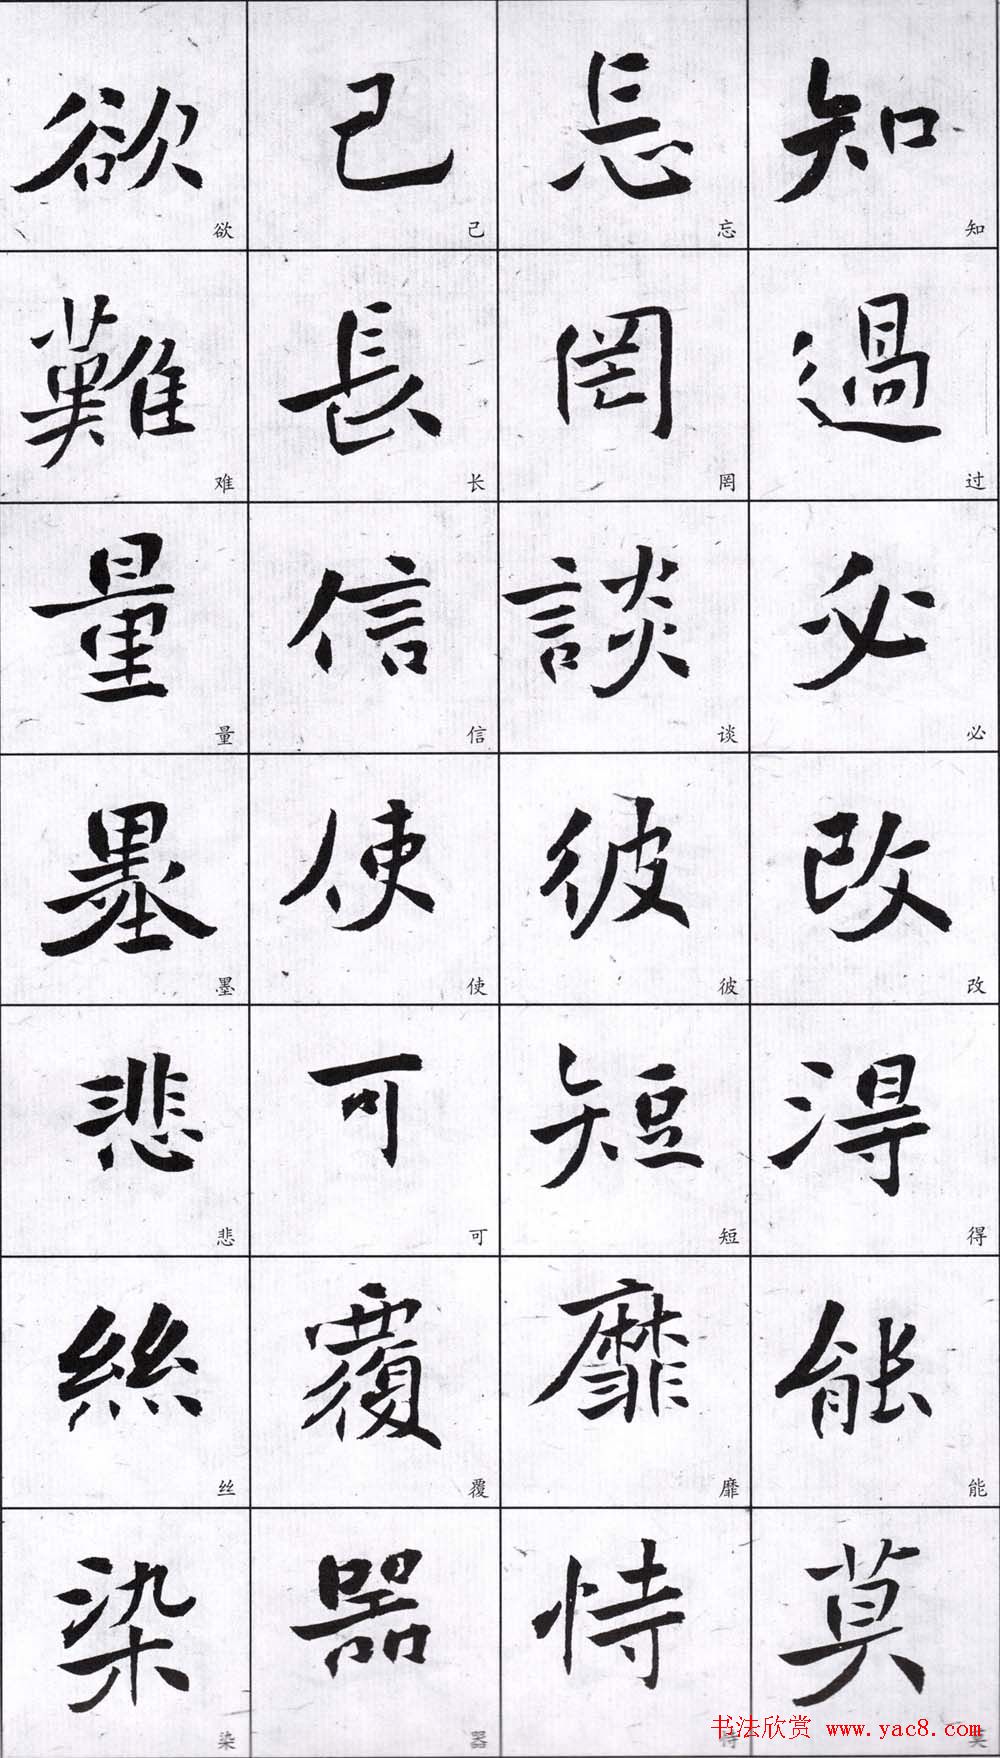 知過必改得能莫
忘罔談彼短靡恃
己長信使可覆器
欲難量墨悲絲染
知过必改得能莫
忘罔谈彼短靡恃
己长信使可覆器
欲难量墨悲丝染
书法欣赏 www.yac8.com